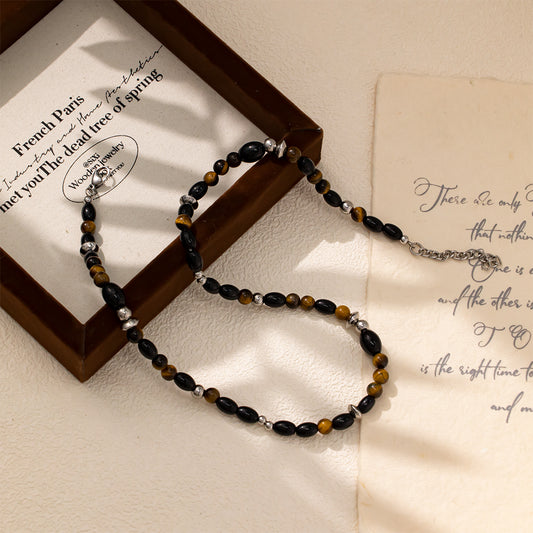 French Paris
Industry and Home Aesthetics
met youThe dead tree of spring
@sxj
Wooden jewelry
There are only
that nothing
One is
and the other is
TO
is the right time to
and m